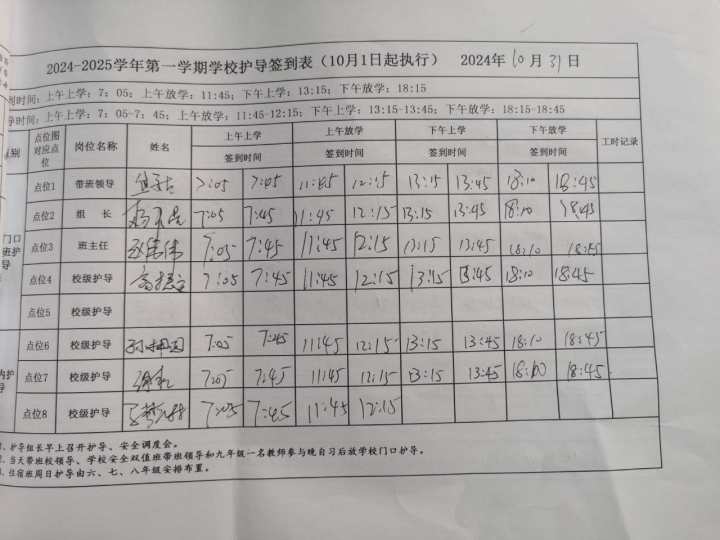 2024-2025学年第一学期学校护导签到表（10月1日起执行） 2024年 10 月 31 日
到时间：上午上学：7：05；上午放学：11:45；下午上学：13:15；下午放学：18:15
导时间：上午上学：7：05-7：45；上午放学：11:45-12:15；下午上学：13:15-13:45；下午放学：18:15-18:45
级别 点位图对应点位 岗位名称 姓名 上午上学 上午放学 下午上学 下午放学 工时记录
签到时间 签到时间 签到时间 签到时间
点位1 带班领导 7:05 7:45 11:45 12:15 13:15 13:45 18:10 18:45
点位2 组 长 7:05 7:45 11:45 12:15 13:15 13:45 18:10 18:45
门口班护导 点位3 班主任 7:05 7:45 11:45 12:15 13:15 13:45 18:10 18:45
点位4 校级护导 7:05 7:45 11:45 12:15 13:15 13:45 18:10 18:45
点位5 校级护导
点位6 校级护导 7:05 7:45 11:45 12:15 13:15 13:45 18:10 18:45
内护导 点位7 校级护导 7:05 7:45 11:45 12:15 13:15 13:45 18:10 18:45
点位8 校级护导 7:05 7:45 11:45 12:15
1、护导组长早上召开护导、安全调度会。
2、当天带班校领导、学校安全双值班带班领导和九年级一名教师参与晚自习后放学校门口护导。
3、住宿班周日护导由六、七、八年级安排布置。